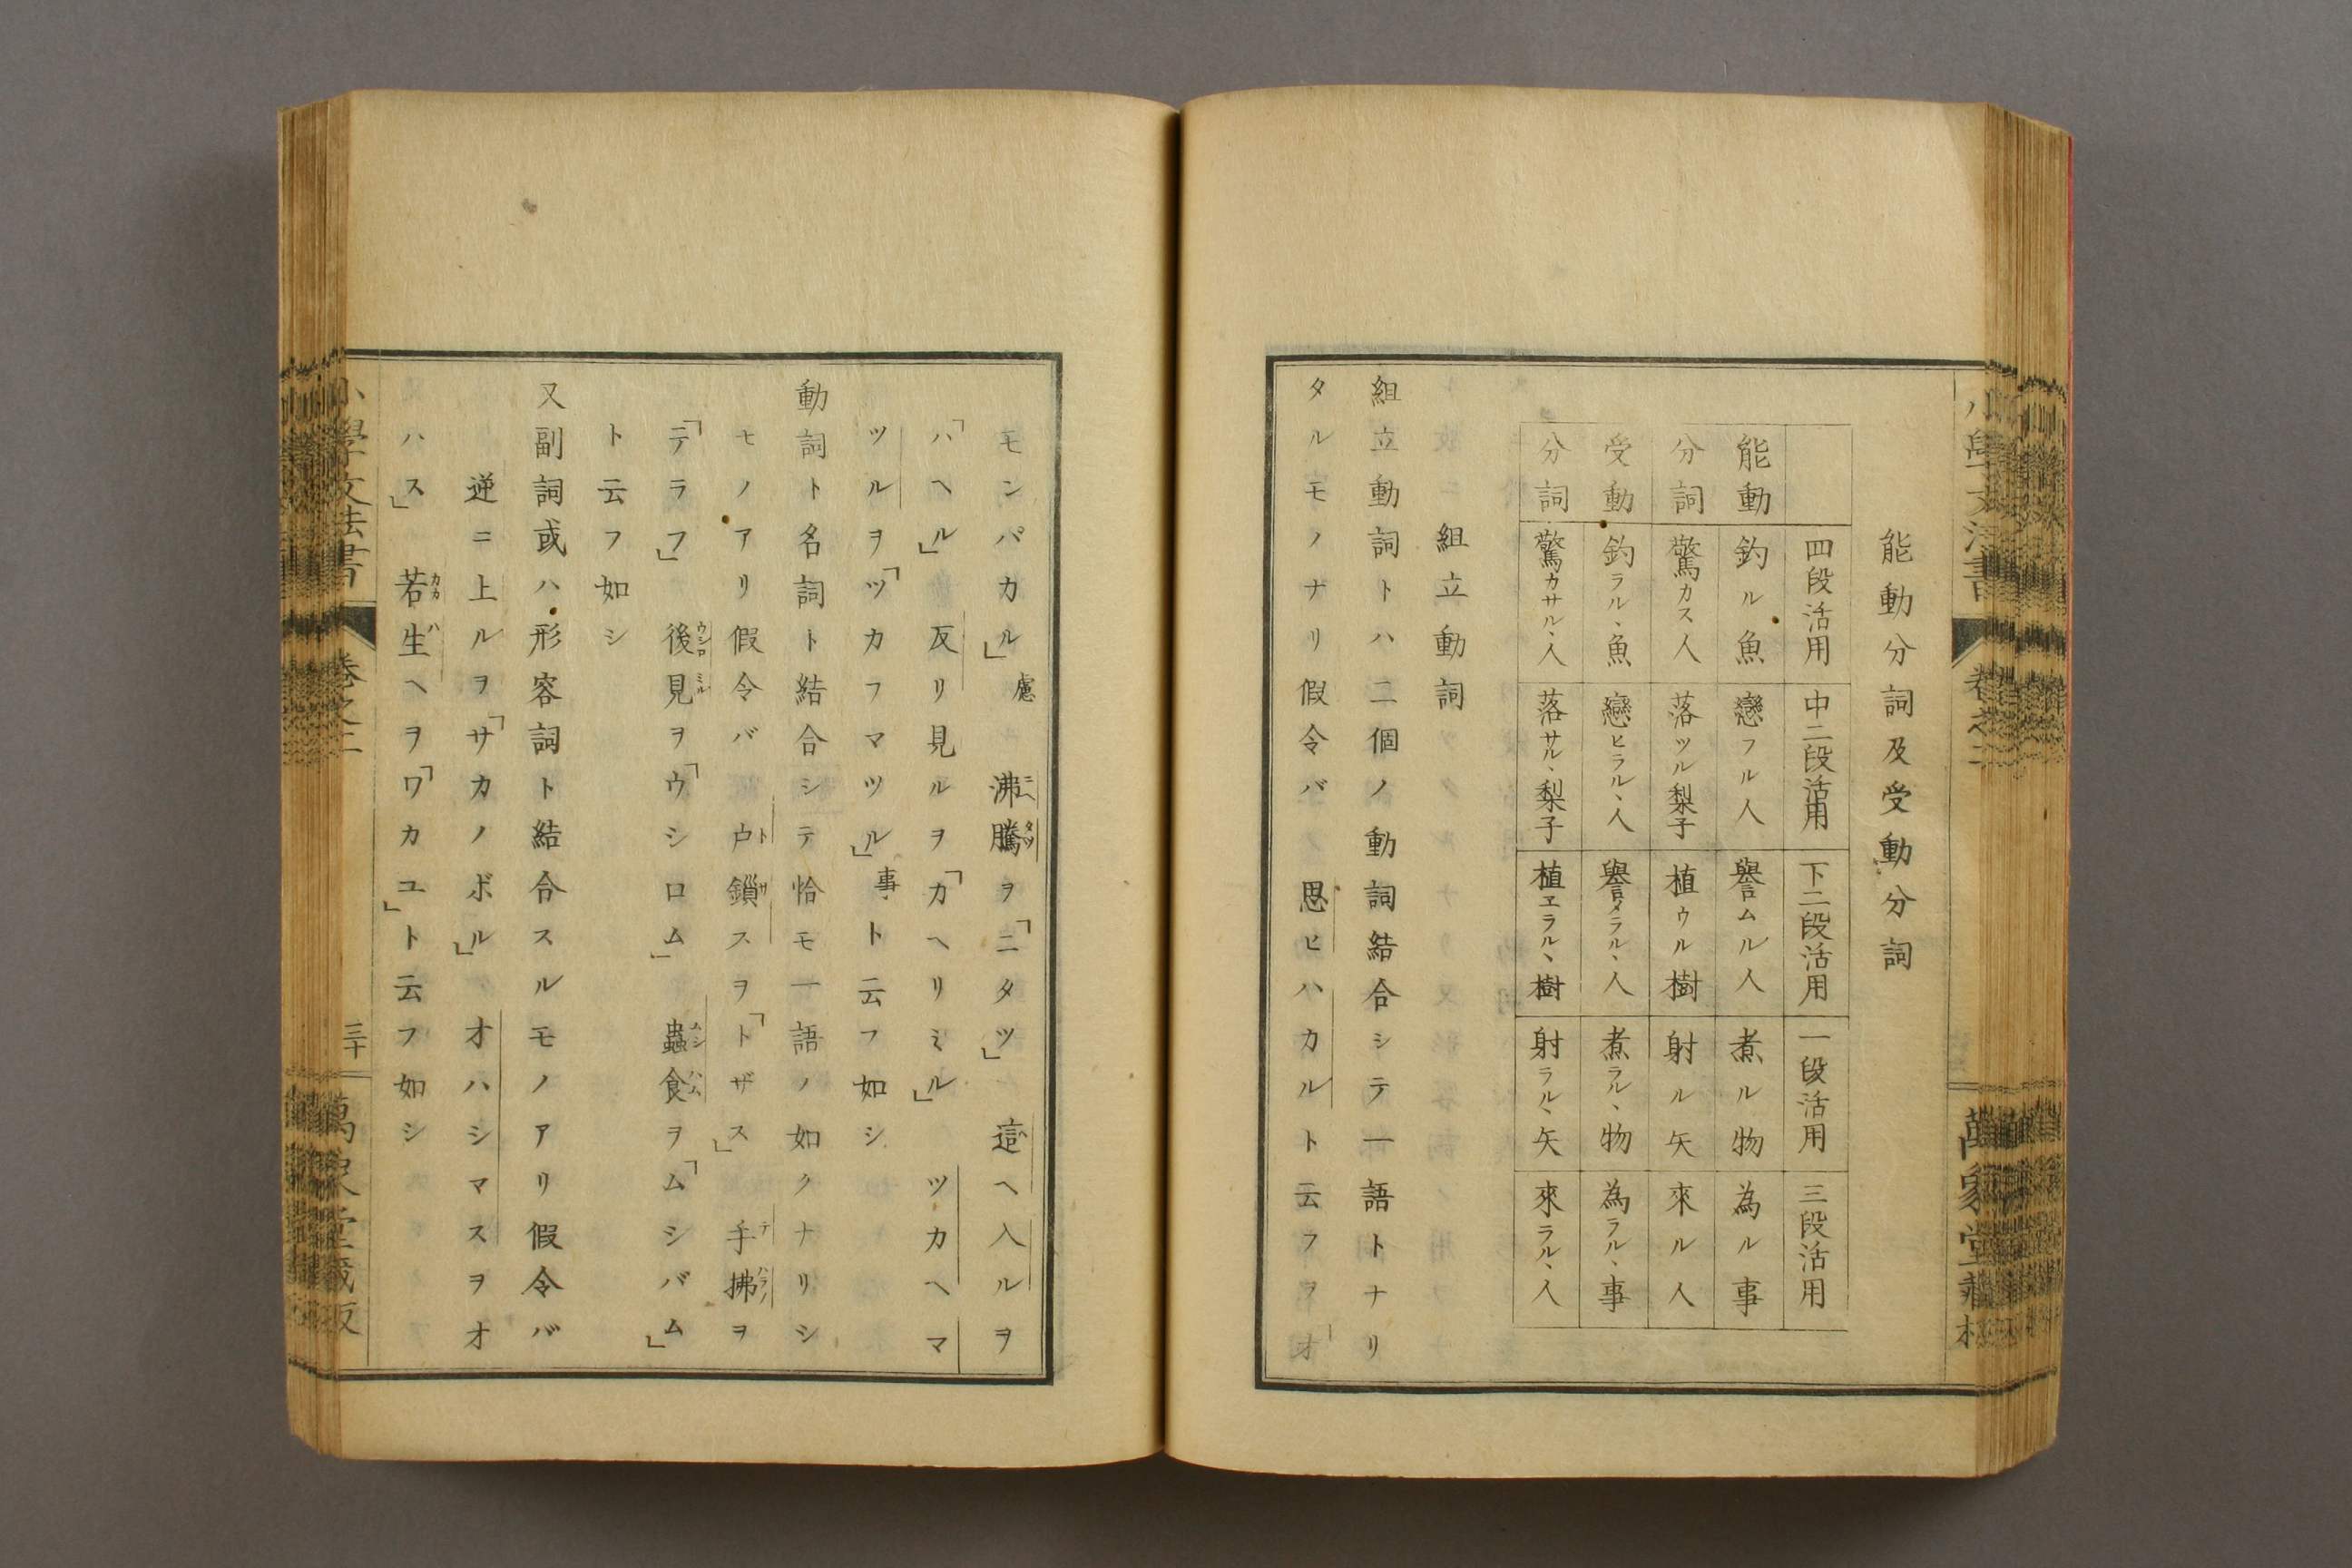 能動分詞及受動分詞
四段活用 中二段活用 下二段活用 一段活用 三段活用
能動 釣ル魚 戀フル人 譽ムル人 煮ル物 為ル事
分詞 驚カス人 落ツル梨子 植ウル樹 射ル矢 來ル人
受動 釣ラル、魚 戀ヒラル、人 譽メラル、人 煮ラル、物 為ラル、事
分詞 驚カサル、人 落サル、梨子 植ヱラル、樹 射ラル、矢 來ラル、人
組立動詞
組立動詞トハ二個ノ動詞結合シテ一語トナリ
タルモノナリ假令バ思ヒハカルト云フヲ「オ
モンパカル」慮 沸騰ヲ「ニタツ」 這ヘ入ルヲ
「ハヘル」 反リ見ルヲ「カヘリミル」 ツカヘマ
ツルヲ「ツカフマツル」事ト云フ如シ
動詞ト名詞ト結合シテ恰モ一語ノ如クナリシ
モノアリ假令バ 戸鎖スヲ「トザス」 手拂ヲ
「テラフ」 後見ヲ「ウシロム」 蟲食ヲ「ムシバム」
ト云フ如シ
又副詞或ハ形容詞ト結合スルモノアリ假令バ
逆ニ上ルヲ「サカノボル」 オハシマスヲオ
ハス」 若生ヘヲ「ワカユ」ト云フ如シ
小學文法書 卷之二 三十